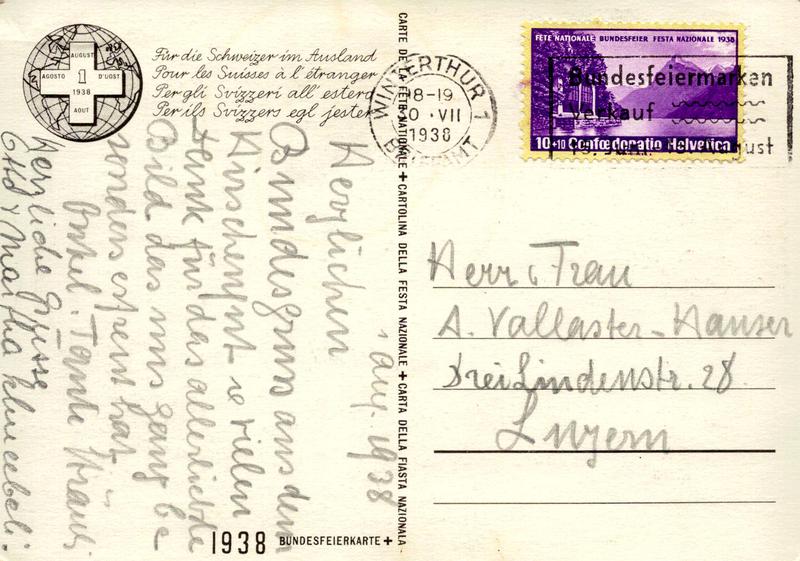 AUGUST
AGOSTO 1 D'UOST
1938
AOUT
Für die Schweizer im Ausland
Pour les Suisses à l'étranger
Per gli Svizzeri all'estero
Per ils Svizzers egl jester
1. Aug. 1938
Herzlichen
Bundesgruss aus dem
Kirschenfest u vielen
Dank für das allerliebste
Bild das uns ganz be
sonders erfreut hat
Onkel u. Tante
Herzliche Grüsse
Martha
1938 BUNDESFEIERKARTE +
CARTE DE LA FÊTE NATIONALE + CARTOLINA DELLA FESTA NAZIONALE + CARTA DELLA FIASTA NAZIONALA
WINTERTHUR 1
18-19
VII
1938
BRIEFAMT
FÊTE NATIONALE BUNDESFEIER FESTA NAZIONALE 1938
10+10 Confœderatio Helvetica
Bundesfeiermarken
Verkauf
August
Herr u Frau
A. Vallaster-Hauser
Dreilindenstr. 28
Luzern